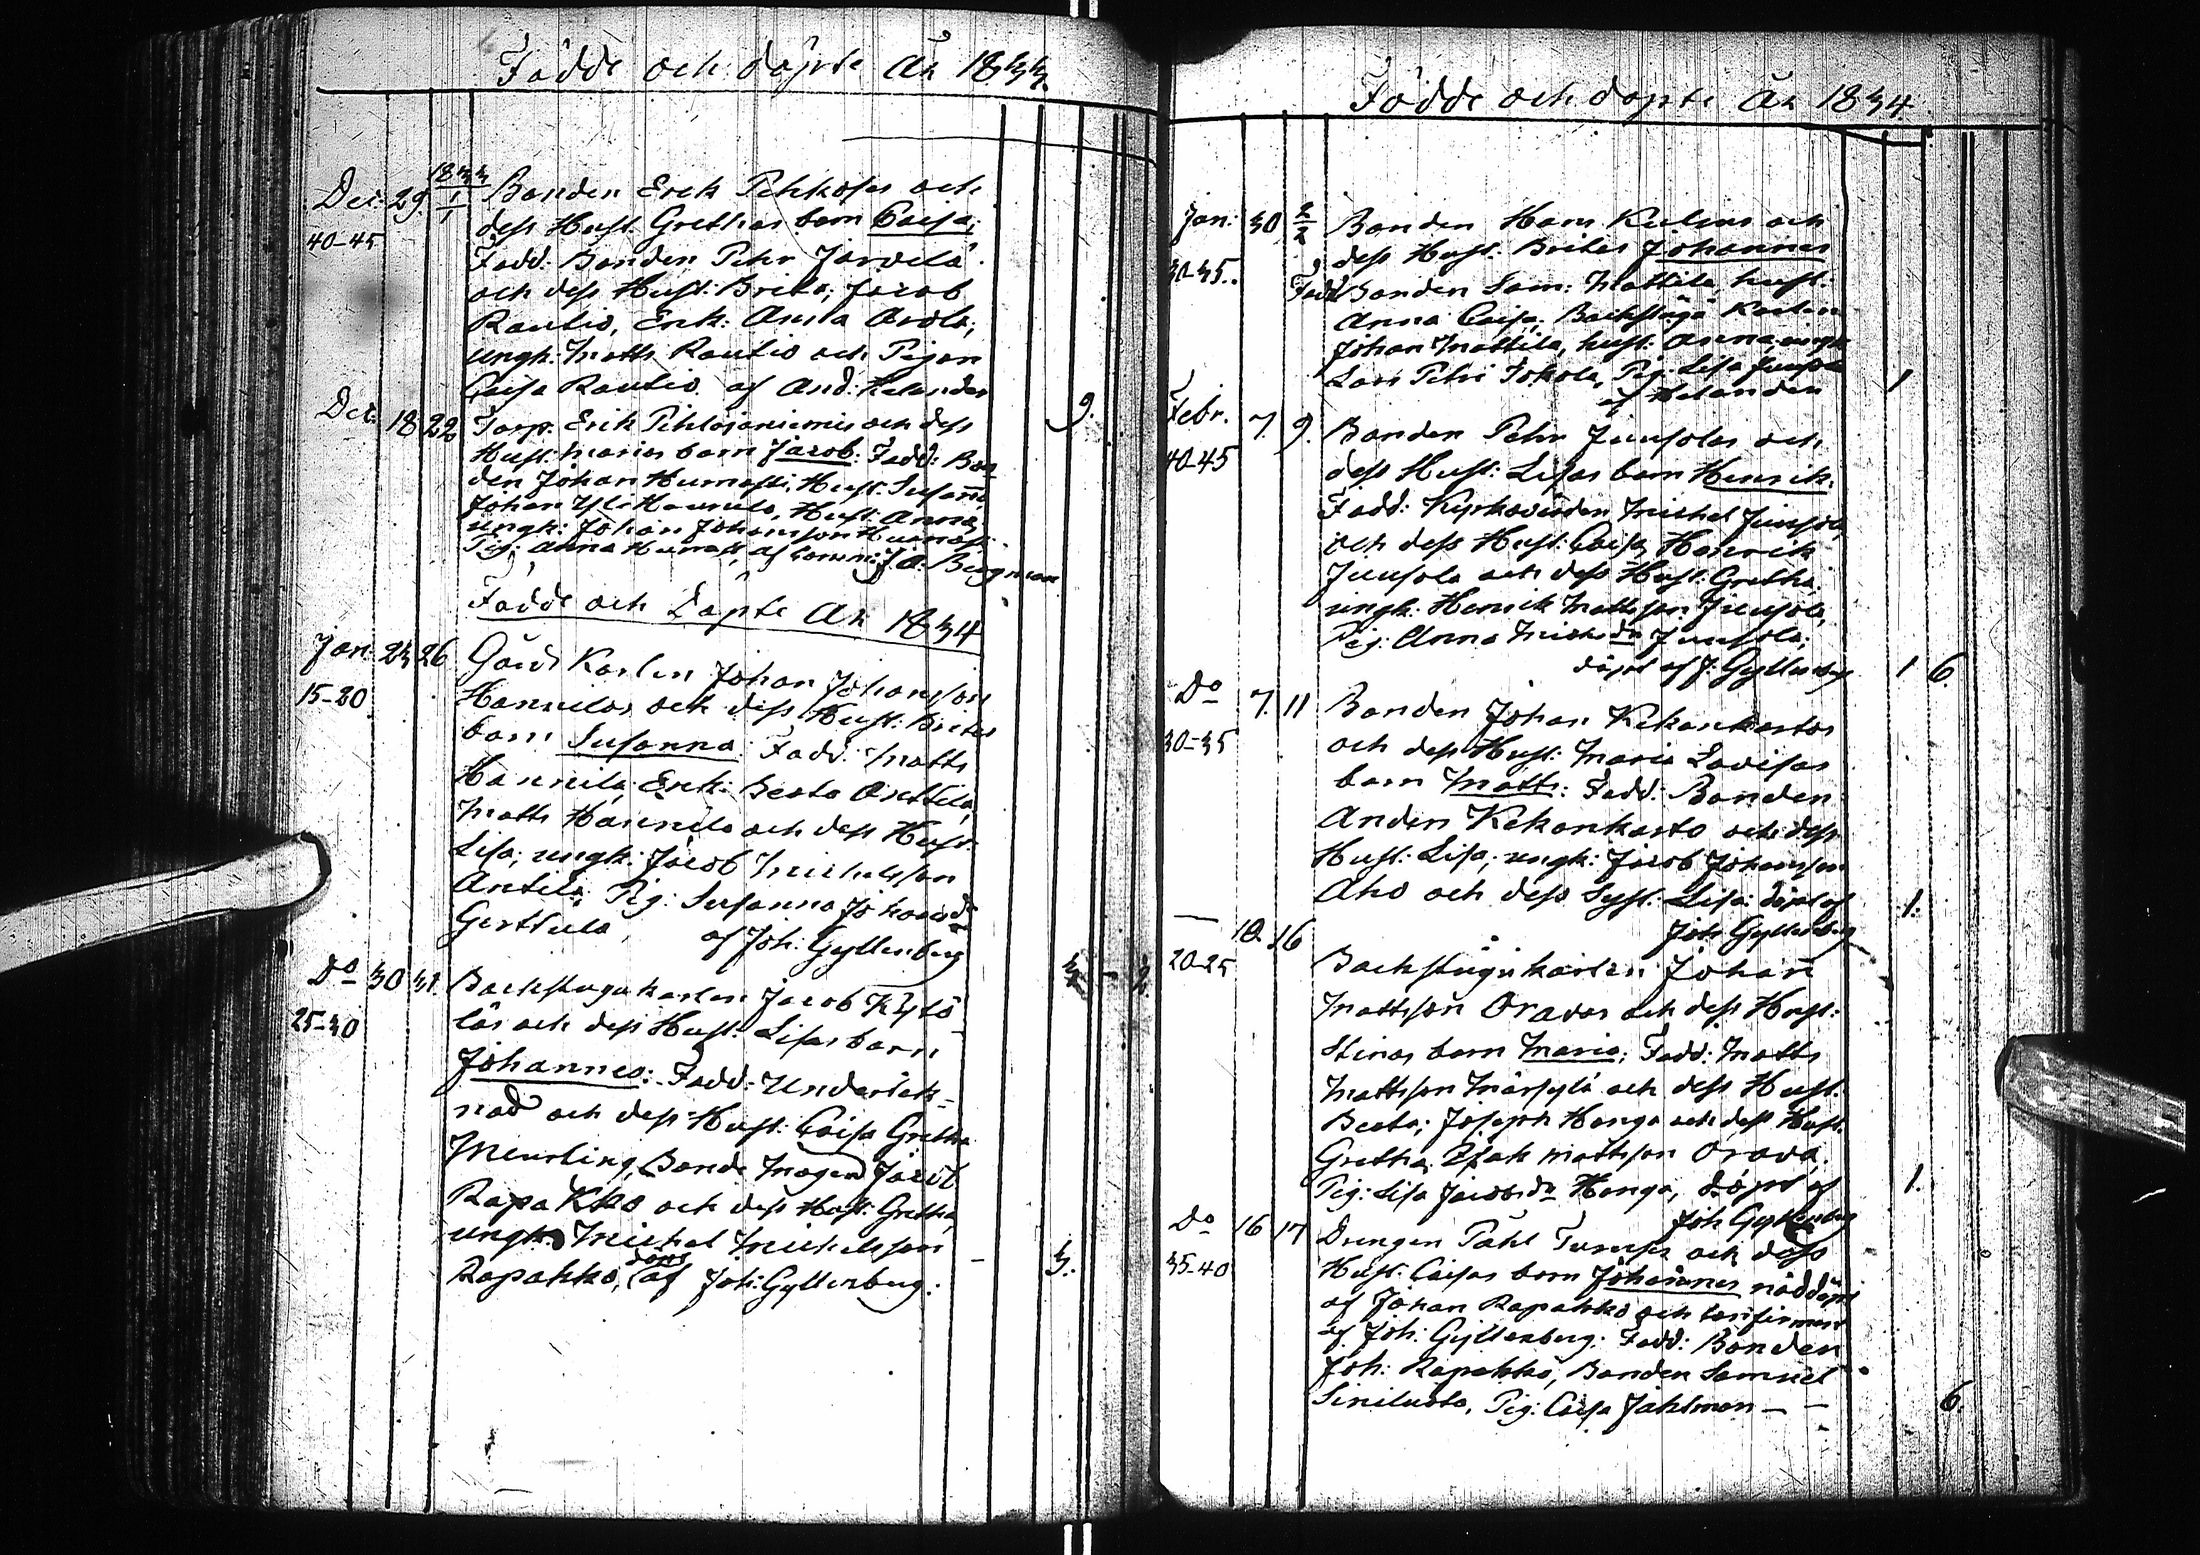 Födde och döpte År 1833.
Dec: 29. 1833 1/1 Bonden Erik Pehkosas och
40-45 dess Hust. Grethas barn Caisa;
Fadd: Bonden Pehr Järvelä
och dess Hust: Brita; Jacob
Rautio, Enk: Anna Arola,
ungk: Matts Rautio och Pigan
Caisa Rautio. af And: Helander
9.
Dec: 18 22 Torp: Erik och dess
Hust: Marias barn Jacob: Fadd: Bon
den Johan Humasti, Hust: Susanna,
Johan Yli Hannila, Hust: Anna,
ungk: Johan Johansson Humasti
Pig: Anna Humasti, af Comm: J. A. Bergman
Födde och Döpte År 1834
Jan: 23 26 Gårds Karlen Johan Johansson
15-20 Hannilas och dess Hust: Britas
barn Susanna: Fadd: Matts
Hannila, Enk: Beata Anttila,
Matts Hannila och dess Hust:
Lisa; ungk: Jacob Michelsson
Antila, Pig: Susanna Johansdr
Gerttula, af Joh: Gyllenberg
Do 30 31. Backstugu karlen Jacob Kylö
25-30 läs och dess Hust: Lisas barn
Johannes: Fadd: Undertek-
nad och dess Hust: Caisa Gretha
Meurling, Bonde Magen Jacob
Rapakko och dess Hust: Gretha,
ungk: Michel Michelsson
Rapakko, döpt af Joh: Gyllenberg.
3.
Födde och döpte År 1834
Jan: 30 2/2 Bonden Hans och
30-35. dess Hust: Britas Johannes
Fadd Bonden Sam: Mattila, hust:
Anna Caisa, Backstugu Karlen
Johan Mattila, hust: Anna, ungk
Lars Petri Jokela, Pig: Lisa Junsola
af Helander
1
Febr. 7. 9. Bonden Pehr Junsolas och
40-45 dess Hust: Lisas barn Henrik.
Fadd: Kyrkovärden Michel Junsola,
och dess Hust: Caisa, Henrik
Junsola och dess Hust: Gretha,
ungk: Henrik Mattsson Junsola,
Pig: Anna Michsdr Junsola;
döpt af J: Gyllenberg 1 6.
Do 7. 11 Bonden Johan Kekonkartos
30-35 och dess Hust: Maria Lovisas
barn Matts: Fadd: Bonden
Anders Kekonkarto och dess
Hust: Lisa; ungk: Jacob Johansson
Aho och dess Syst: Lisa: döpt af
Joh Gyllenberg 1.
— 10. 16 Backstugukarlen Johan
20-25 Mattsson Oravas och dess Hust:
Stinas barn Maria; Fadd: Matts
Mattsson Märsylä och dess Hust:
Beata; Joseph Honga och dess Hust:
Gretha, Isak Mattsson Orava,
Pig: Lisa Jacobsdr Honga, döpt af
Joh Gyllenberg 1.
Do 16 17 Drengen Påhl och dess
35-40 Hust: Caisas barn Johannes nöddöpt
af Johan Rapakko och confirmerat
af Joh: Gyllenberg: Fadd: Bonden
Joh: Rapakko, Bonden Samuel
Siniluoto, Pig: Caisa Jahlman — —
6.